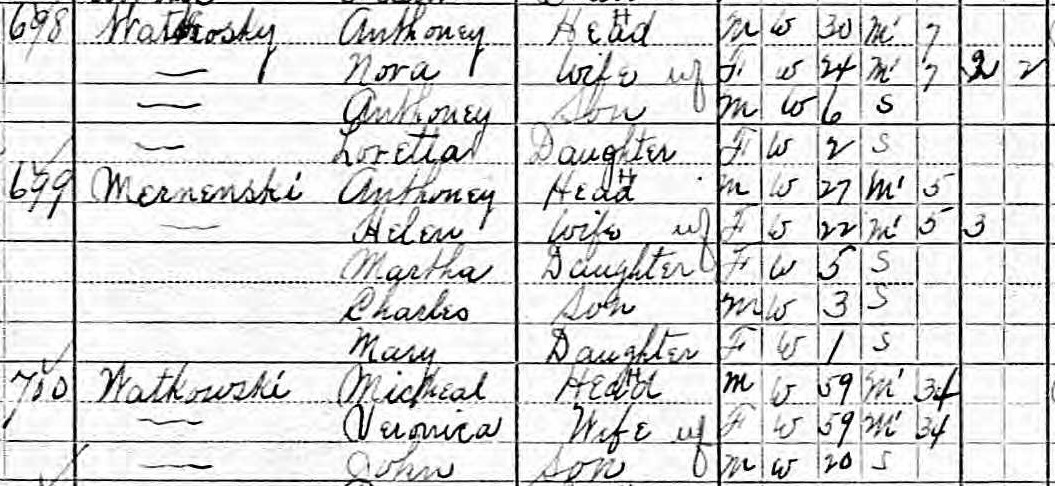 698 Watkosky Anthoney Head M W 30 M' 7
— Nova Wife uf F W 24 M' 7 2 2
— Anthoney Son M W 6 S
— Loretta Daughter F W 2 S
699 Mernenski Anthoney Head M W 27 M' 5
— Helen Wife uf F W 22 M' 5 3
Martha Daughter F W 5 S
Charles Son M W 3 S
Mary Daughter F W 1 S
700 Watkowski Micheal Head M W 59 M' 34
— Veronica Wife uf F W 59 M' 34
— John Son M W 20 S